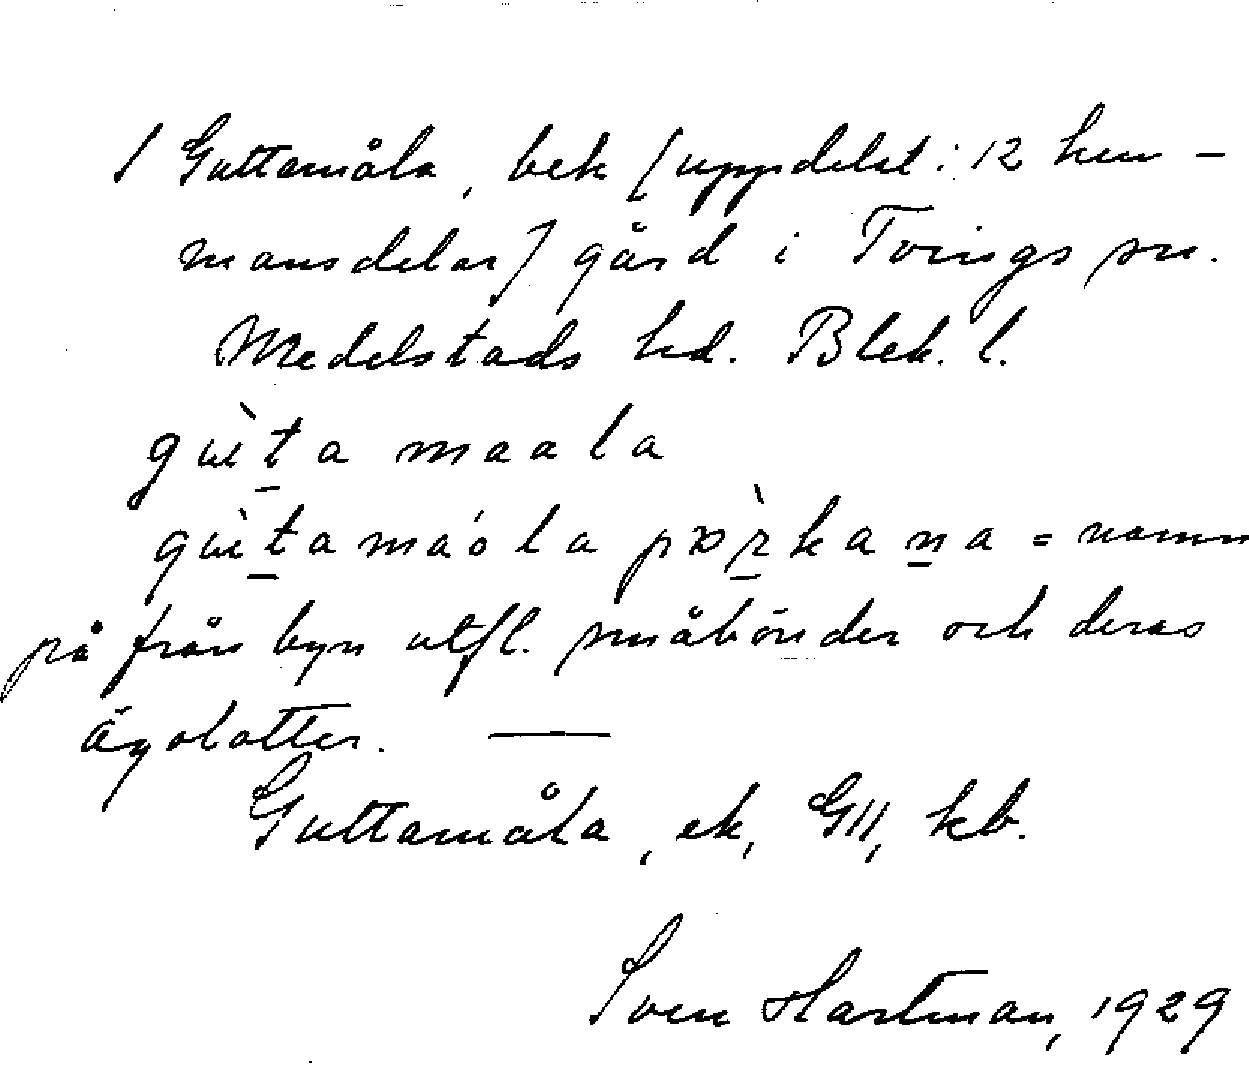 / Guttamåla, bek [uppdelat i 12 hem-
mansdelar] gård i Tvings sn.
Medelstads hd. Blek. l.
maala
= namn
på från byn utfl. småbönder och deras
ägolotter. —
Guttamåla, ek, GII, kb.
Sven Hartman, 1929